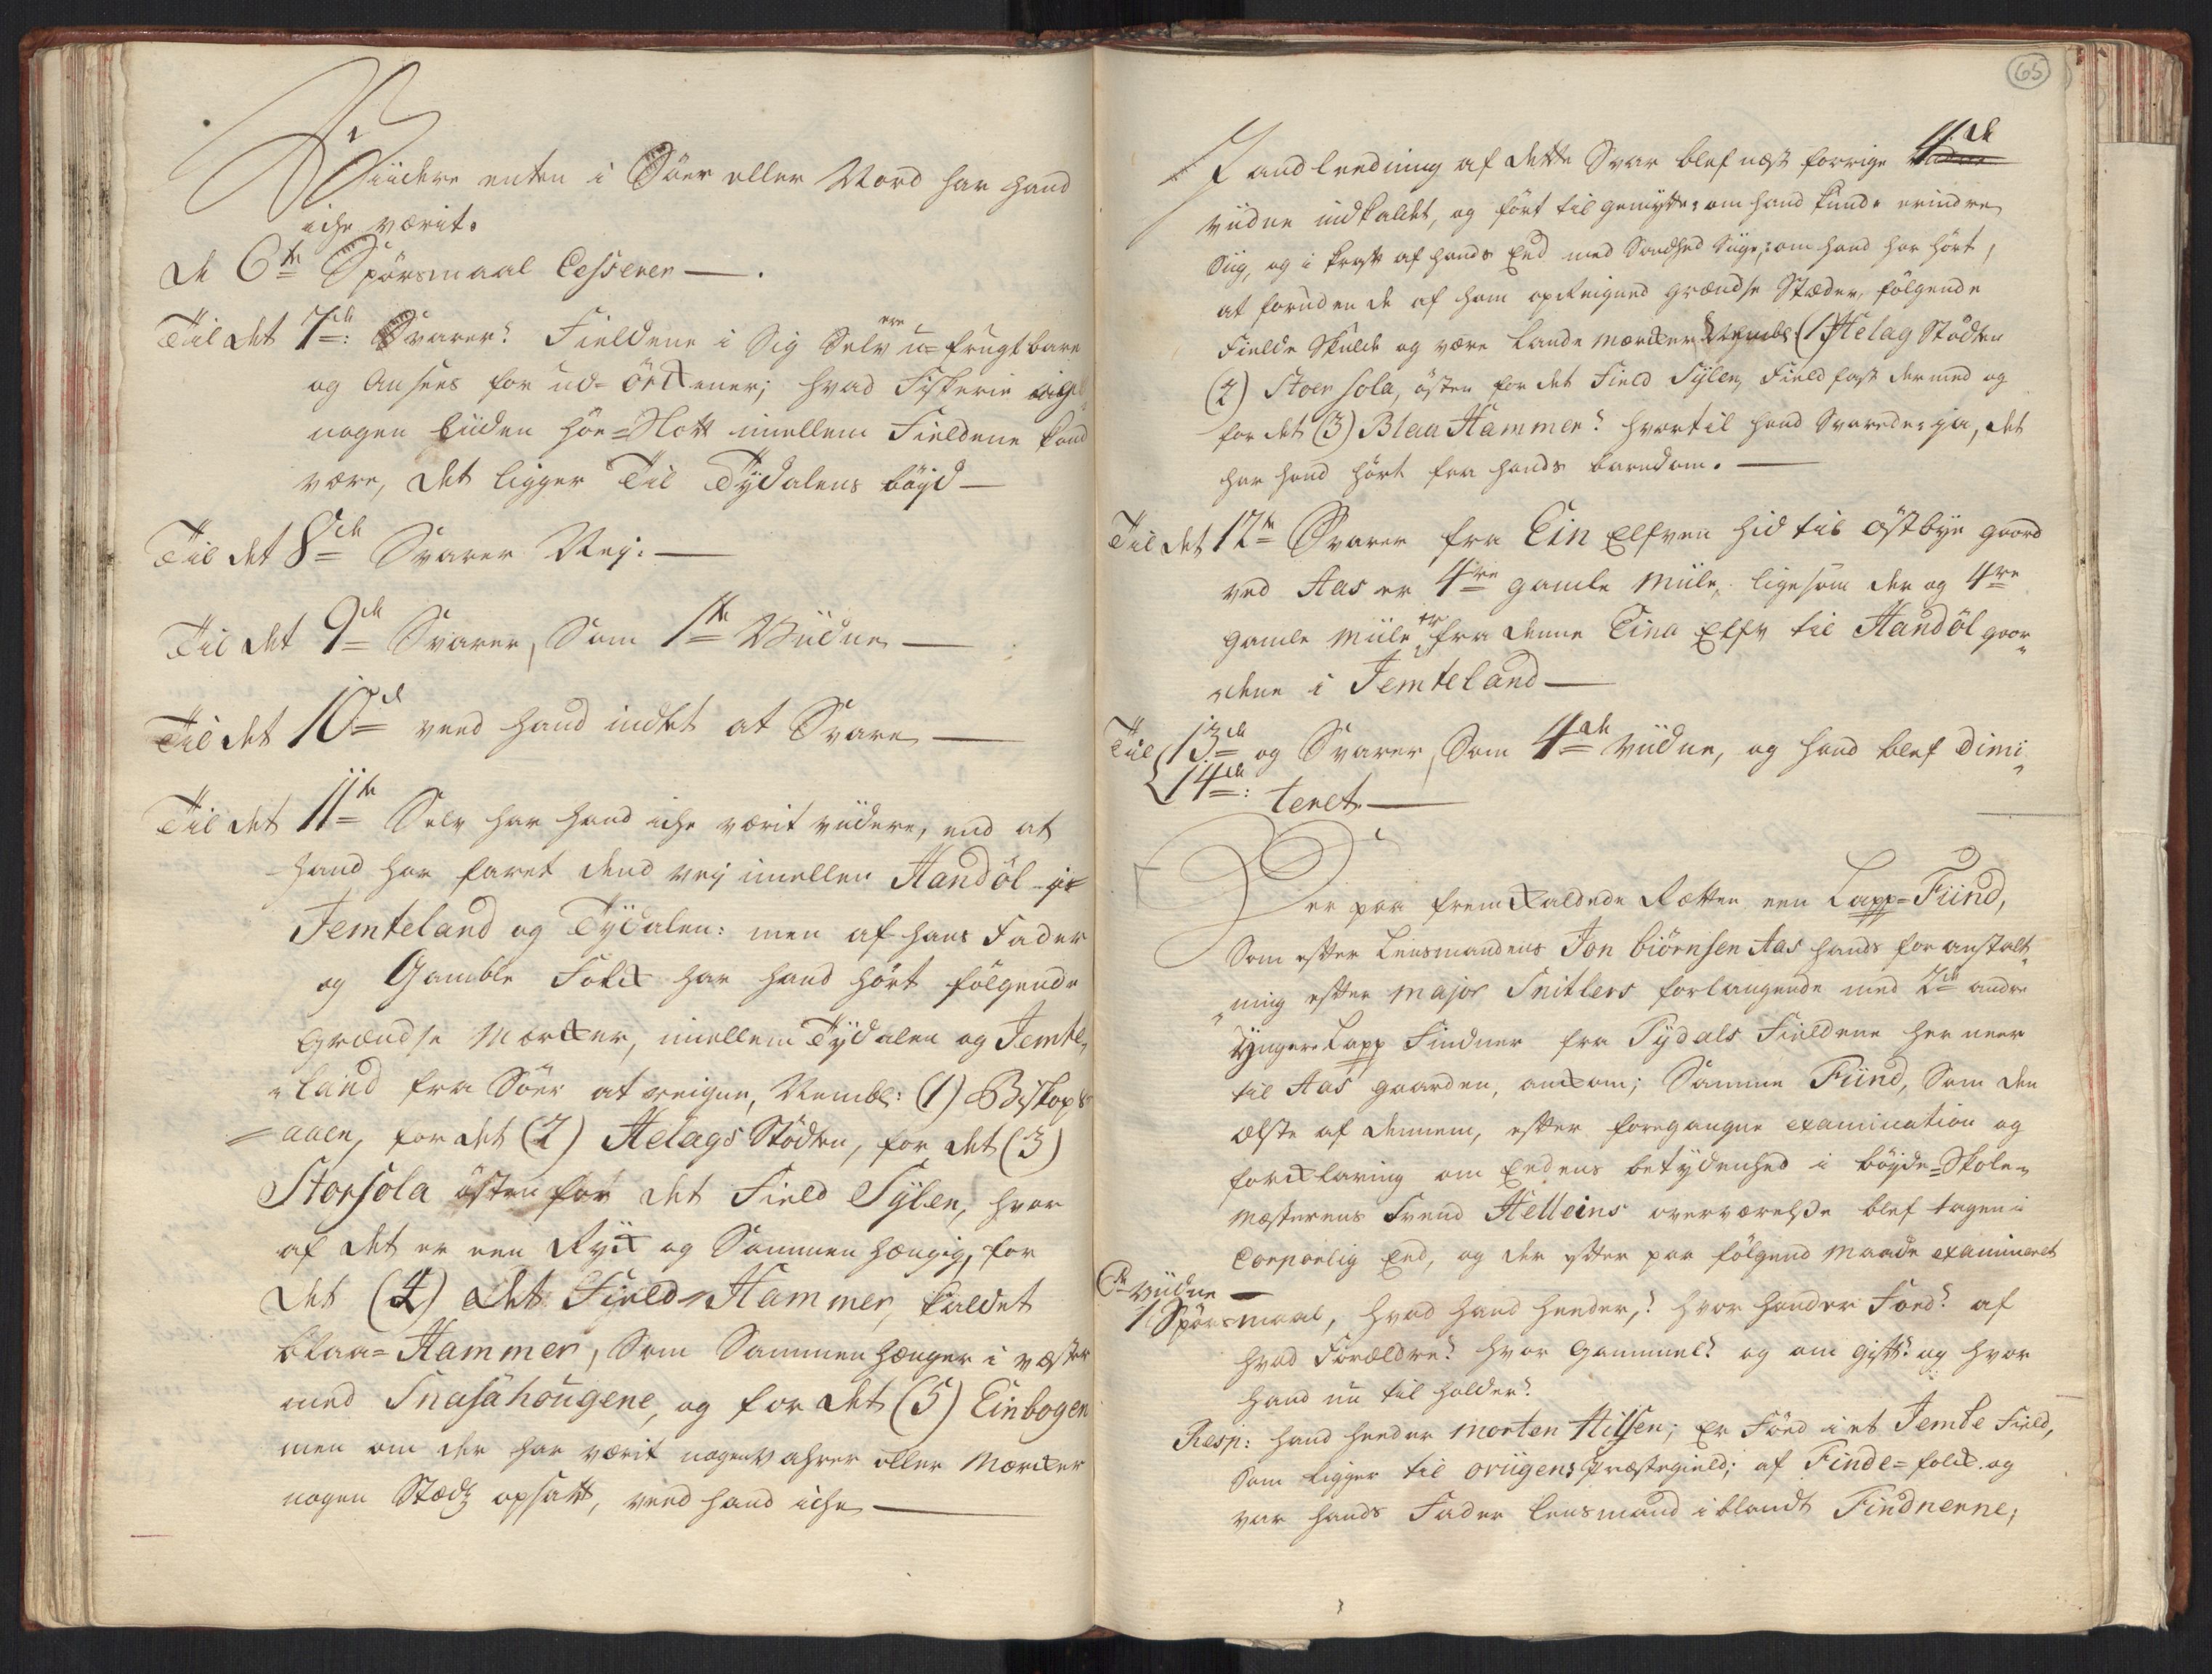 Viidere enten i Söer eller Nord har hand
iche værit.
de 6te Spörsmaal Cesserer — .
Til det 7de: Svarer: Fieldene i Sig Selv ere u-frugtbare
og ansees for ud-örkener; hvad Fiskerie og
nogen liiden Höe-Slott imellem Fieldene kand
være, det ligger Til Tydalens böyd —
Til det 8de Svarer Ney. —
Til det 9de Svarer, Som 1te Viidne —
Til det 10de veed hand indtet at Svare —
Til det 11te Selv har hand iche værit viidere, end at
hand har faret dend vey imellem Handöl i
Jemteland og Tydalen: men af hans Fader
og Gamble Folk har hand hört fölgende
Grændse Mærker, imellem Tydalen og Jemte-
land fra Söer at reigne, Nembl: (1) Biskops
aaen, for det (2) Helags Stödten, for det (3)
Storsola östen for det Field Sylen, hvor
af det er een Ryg og Sammenhængig, for
det (4) det Field Hammer, kaldet
blaa-Hammer, Som Sammenhænger i væster
med Snasahöugene, og for det (5) Einbogen
men om der har værit nogen Vahrer eller Mærker
nogen Stædz opsatt, veed hand iche —
65
I andleedning af dette Svar blef næst forrige 4de
viidne indkaldet, og fört til gemytte; om hand kunde erindre
Siig, og i kraft af hands Eed med Sandhed Siige; om hand har hört,
at foruden de af ham opreignend grændse Stæder, fölgende
Fielde Skulde og være Lande mærker Nembl: (1) Helag Stödten
(2) Stoer sola, östen for det Field Sylen, Field fast dermed og
for det (3) Blaa Hammer? hvortil hand Svarede; ja, det
har hand hört fra hands barndom. —
Til det 12te Svarer fra Ein Elfven hid til Östbye gaard
ved Aas er 4re gamle Miile, ligesom der og 4re
gamle Miile er fra denne Eina Elfv til Handöl gaar-
dene i Jemteland —
Til 13de og Svarer, Som 4de viidne, og hand blef dimi-
14de: teret. —
Der paa fremkaldede Rætten een Lapp-Fiind,
Som efter Lensmandens Jon Biörnsen Aas hands foranstalt-
ning efter Major Snitlers forlangende med 2de andre
Yngere Lapp Findner fra Tydals Fieldene her neer
til Aas gaarden, ankom; Samme Fiind, Som den
ælste af dennem, efter foregangne examination og
forklaring om Eedens betydenhed i böyde-Skole-
mæsterens Svend Helleins overværelse blef tagen i
Corporlig Eed, og der efter paa fölgend maade examineret
6te Viidne —
1 Spörsmaal, hvad hand heeder,? hvor hand er Föed? af
hvad Forældre? hvor Gammel? og om gift? og hvor
hand nu til holder?
Resp: hand heeder Morten Hilsen; Er Föed i et Jemte Field,
Som ligger til oviigens Præstegield; af Finde-folk og
var hands Fader Lensmand iblandt Findnerne;